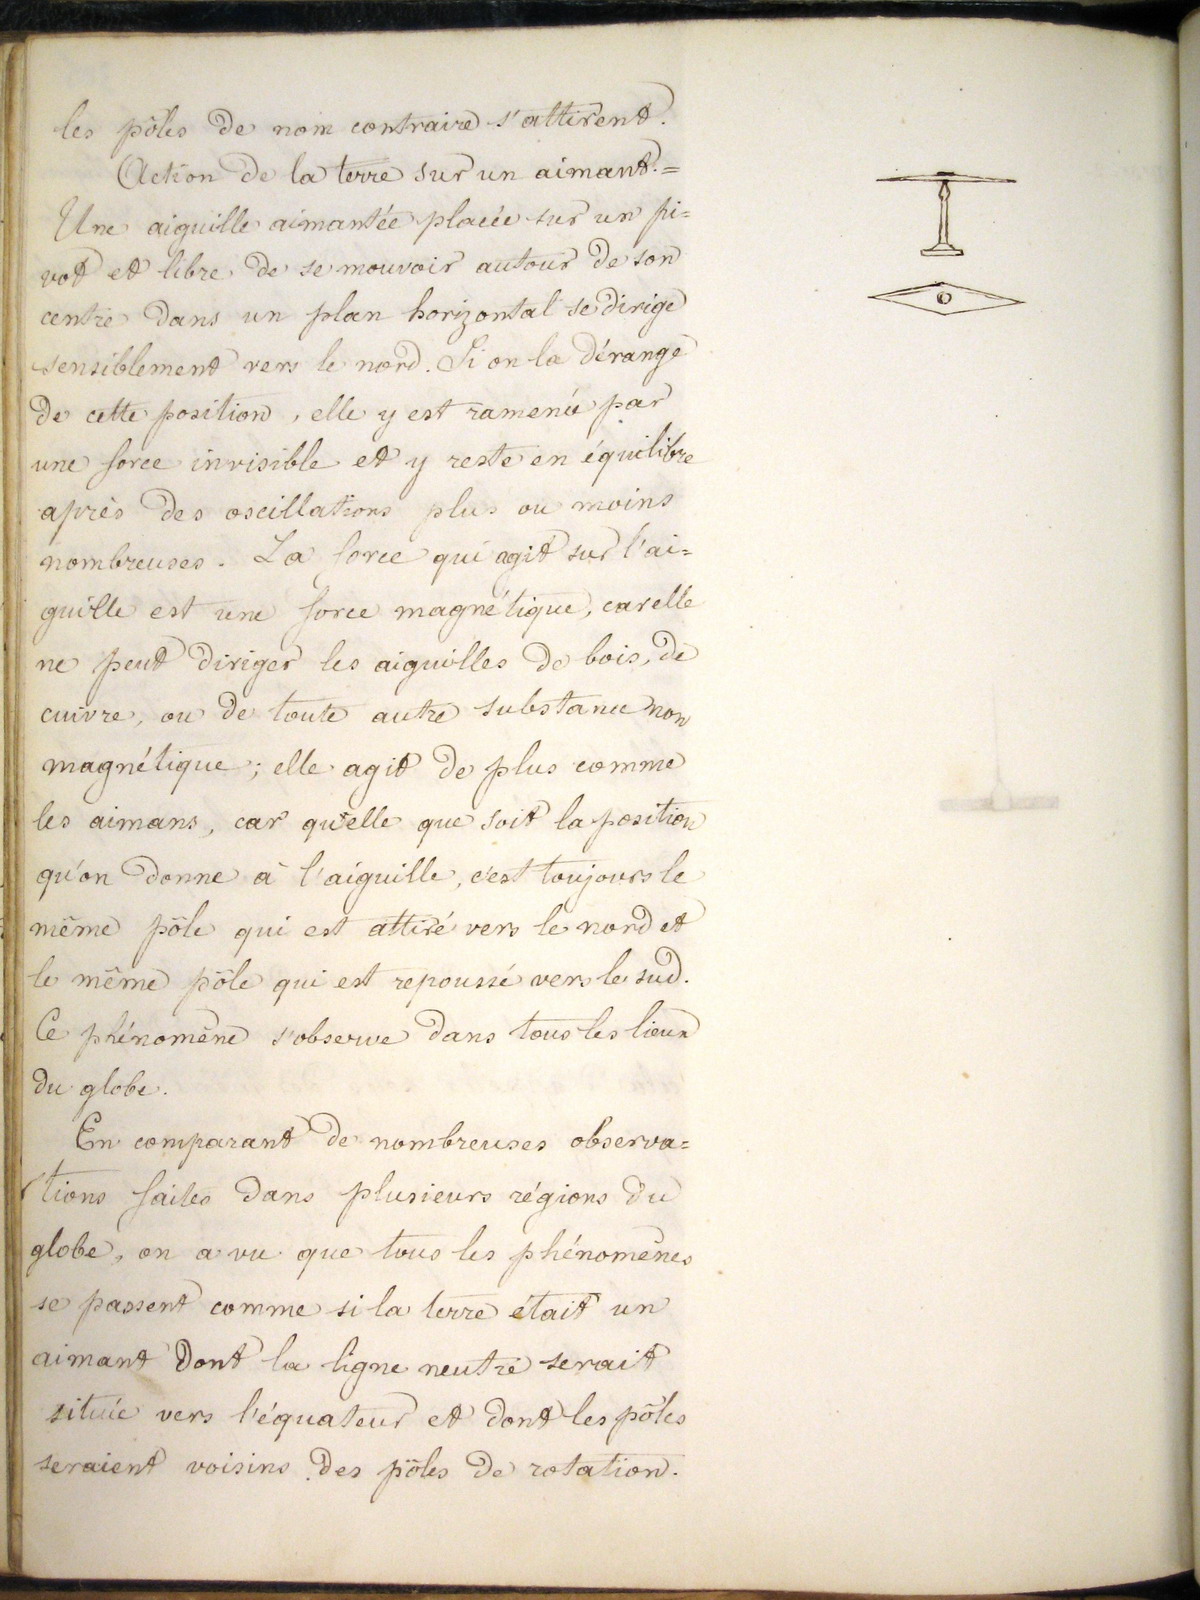 les pôles de nom contraire s'attirent.
Action de la terre sur un aimant.=
Une aiguille aimantée placée sur un pi=
vot et libre de se mouvoir autour de son
centre dans un plan horizontal se dirige
sensiblement vers le nord. Si on la dérange
de cette position, elle y est ramenée par
une force invisible et y reste en équilibre
après des oscillations plus ou moins
nombreuses. La force qui agit sur l'ai=
guille est une force magnétique, car elle
ne peut diriger les aiguilles de bois, de
cuivre, ou de toute autre substance non
magnétique; elle agit de plus comme
les aimans, car qu'elle que soit la position
qu'on donne à l'aiguille, c'est toujours le
même pôle qui est attiré vers le nord et
le même pôle qui est repoussé vers le sud.
Ce phénomène s'observe dans tous les lieux
du globe.
En comparant de nombreuses observa=
tions faites dans plusieurs régions du
globe, on a vu que tous les phénomènes
se passent comme si la terre était un
aimant dont la ligne neutre serait
située vers l'équateur et dont les pôles
seraient voisins des pôles de rotation.